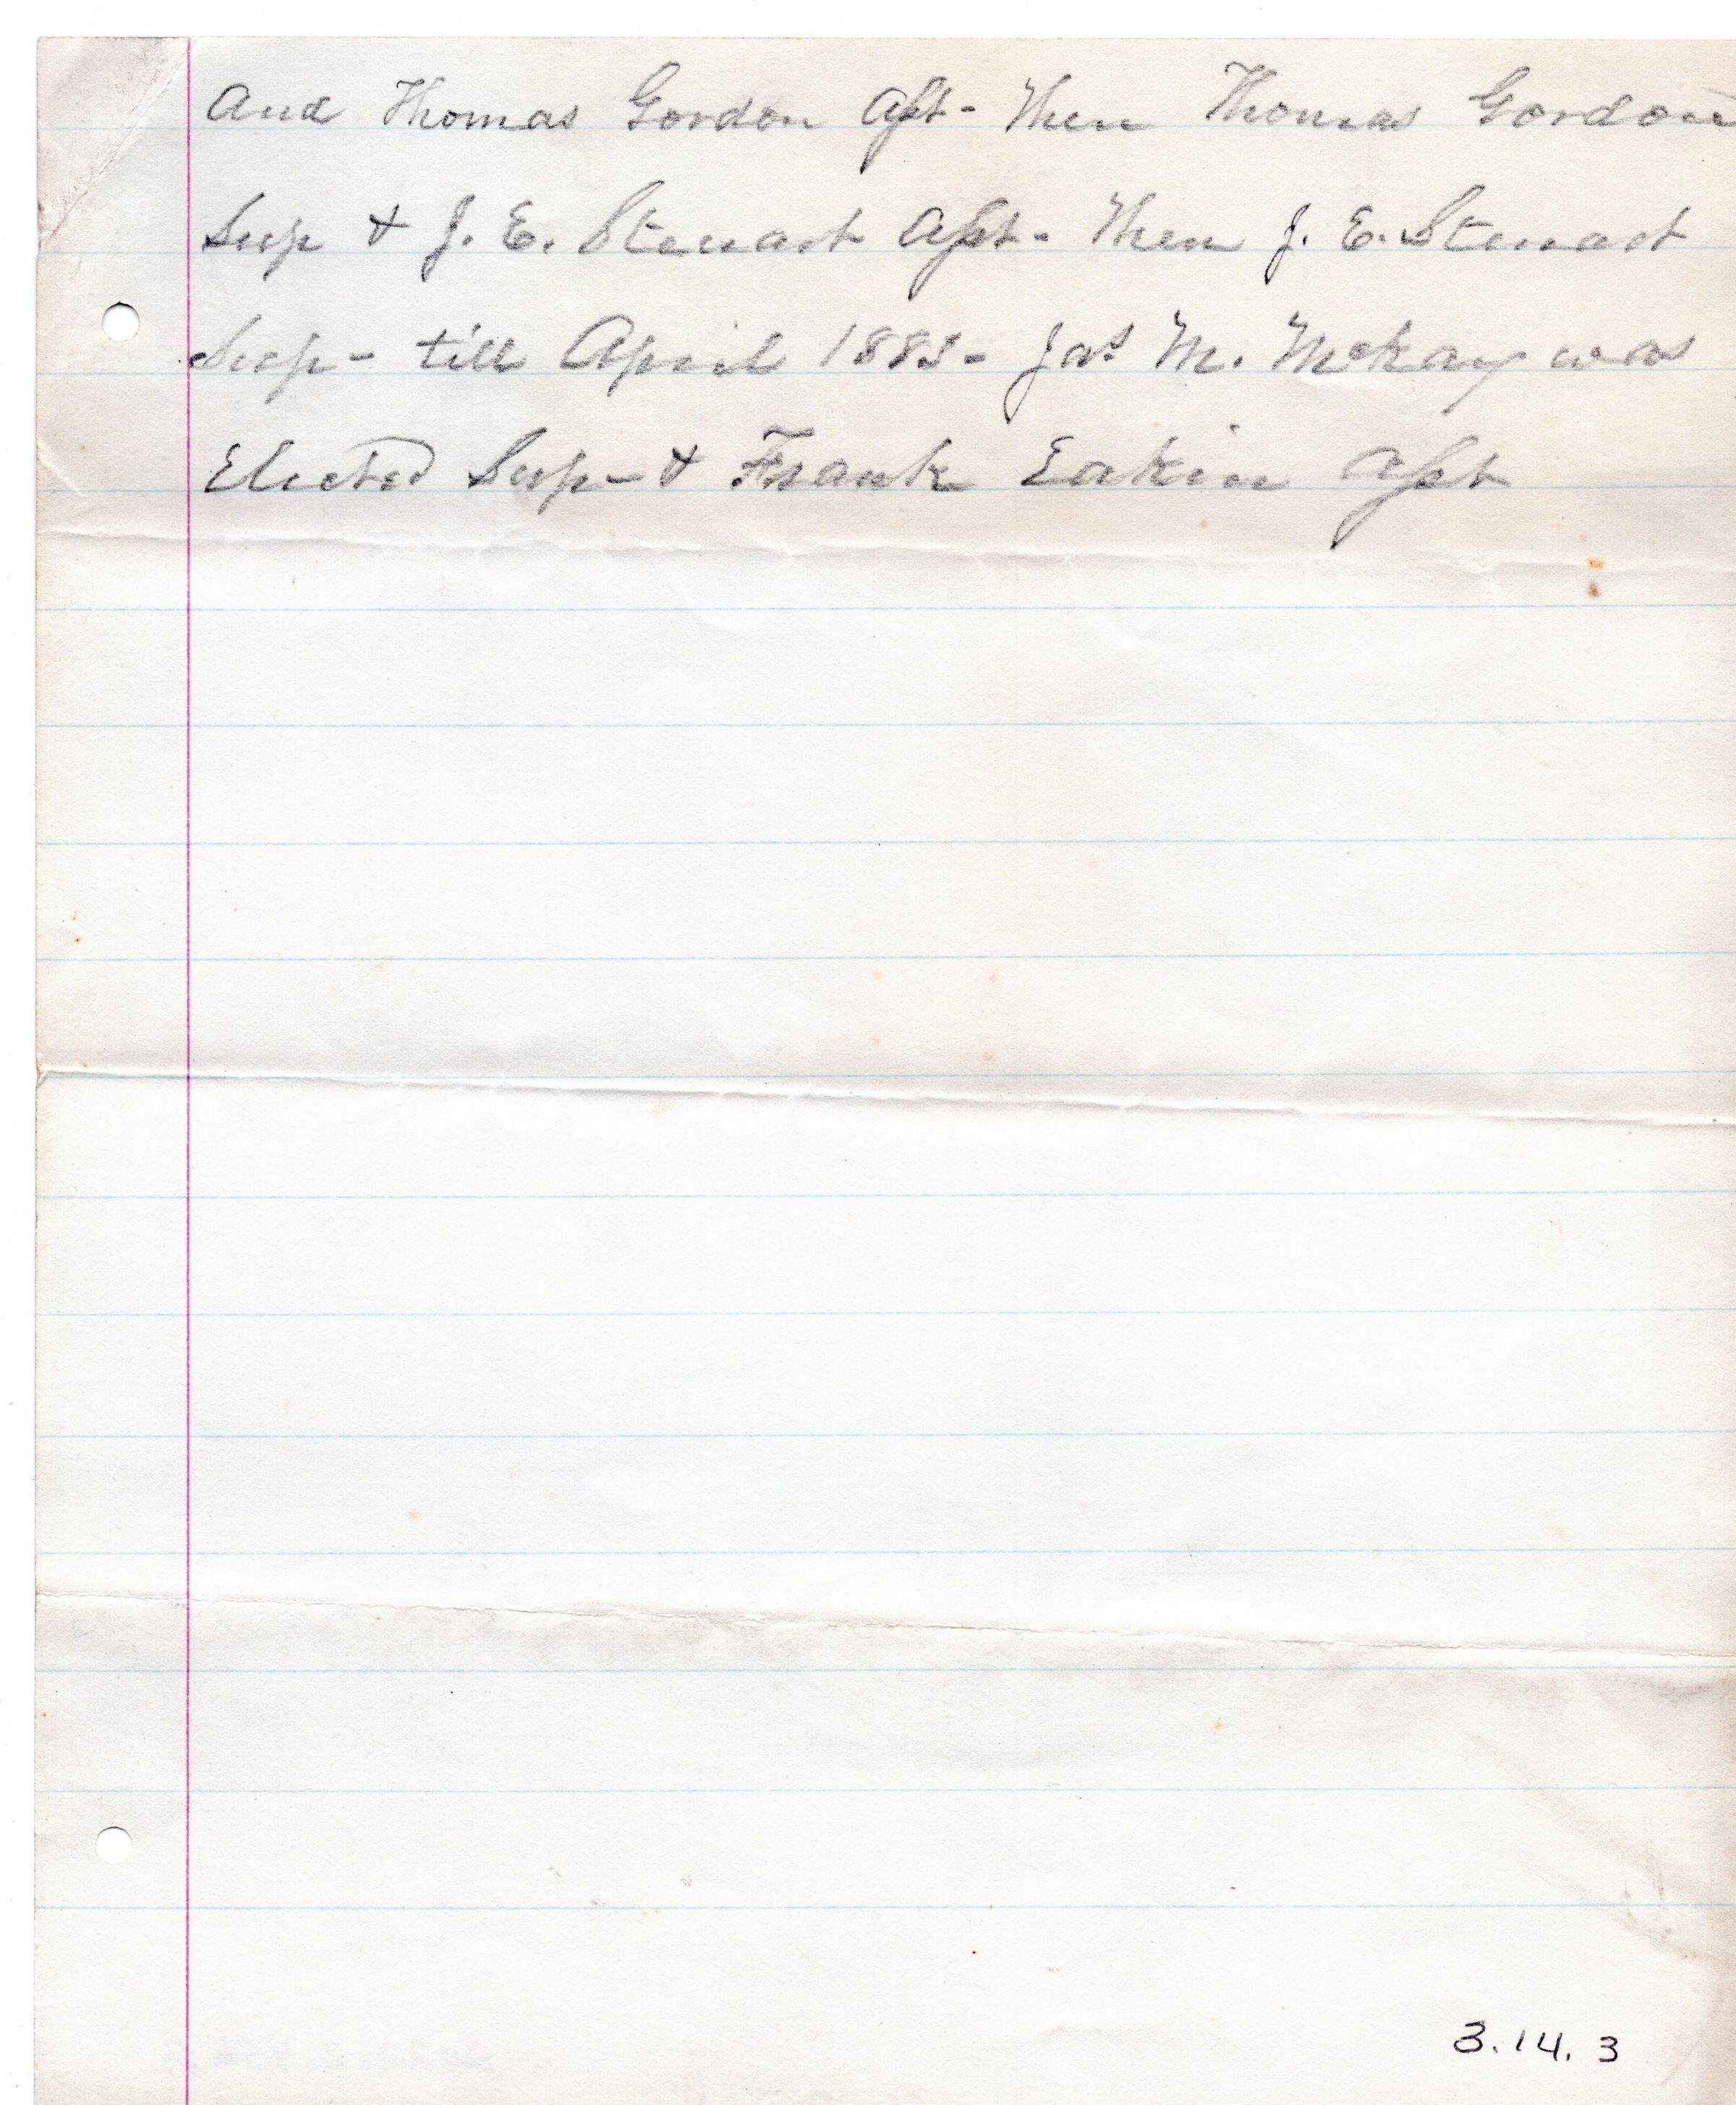 And Thomas Gordon Asst - Then Thomas Gordon
Sup & J. E. Stewart Asst - Then J. E. Stewart
Sup - till April 1883 - Jas M. McKay was
Elected Sup - & Frank Eakin Asst
3.14.3